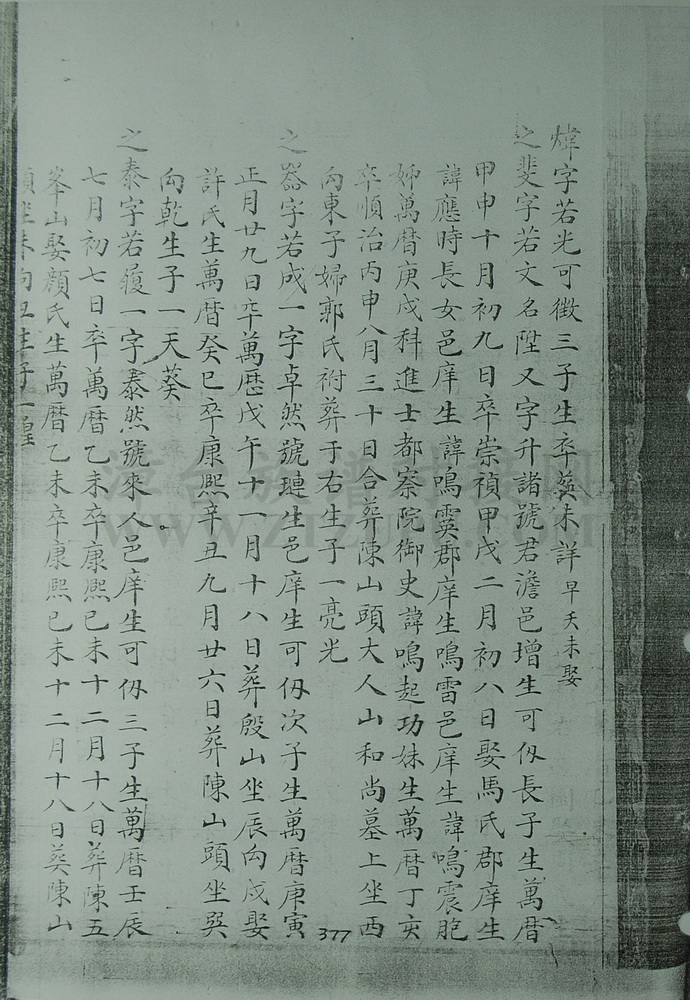 煒字若光可徵三子生卒葬未詳早夭未娶
之斐字若文名陞又字升諸號君澹邑增生可仭長子生萬曆
甲申十月初九日卒崇禎甲戌二月初八日娶馬氏郡庠生
諱應時長女邑庠生諱鳴霙郡庠生鳴雷邑庠生諱鳴震胞
姊萬曆庚戌科進士都察院御史諱鳴起功妹生萬曆丁亥
卒順治丙申八月三十日合葬陳山頭大人山和尚墓上坐西
向東子婦郭氏祔葬于右生子一亮光
之器字若成一字卓然號璉生邑庠生可仭次子生萬曆庚寅
正月廿九日卒萬歷戊午十一月十八日葬殷山坐辰向戌娶
許氏生萬曆癸巳卒康熙辛丑九月廿六日葬陳山頭坐巽
向乾生子一天葵
之泰字若履一字泰然號來人邑庠生可仭三子生萬曆壬辰
七月初七日卒萬曆乙未卒康熙己未十二月十八日葬陳五
峯山娶顏氏生萬曆乙未卒康熙己未十二月十八日葬陳山
頭坐未向丑生子一
377